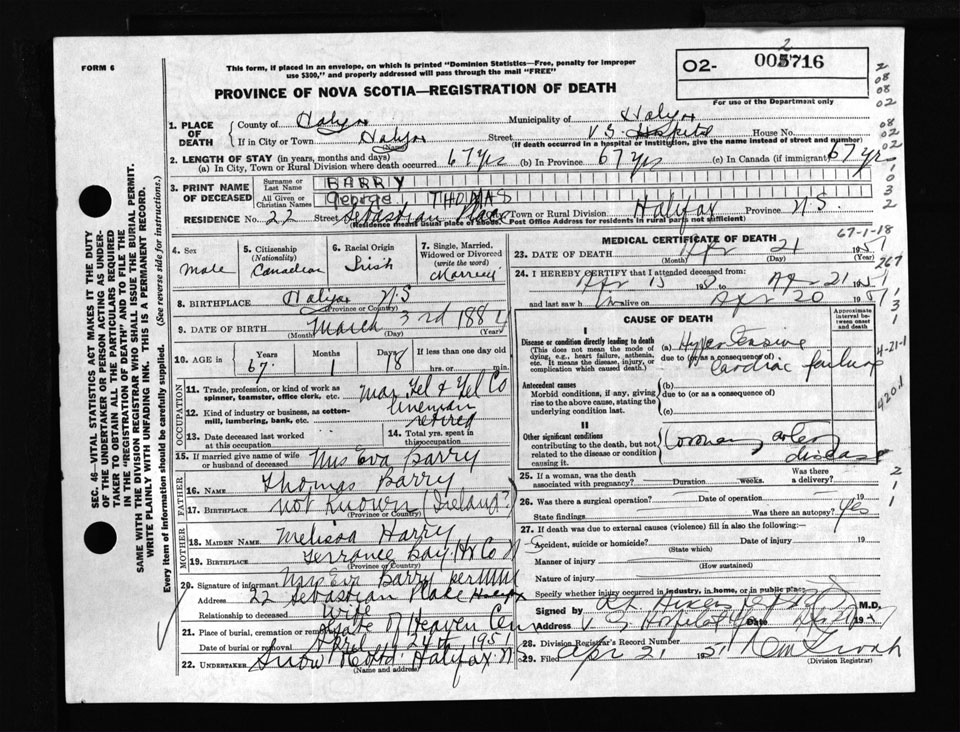 FORM 6
This form, if placed in an envelope, on which is printed "Dominion Statistics—Free, penalty for improper
use $300," and properly addressed will pass through the mail "FREE"
PROVINCE OF NOVA SCOTIA—REGISTRATION OF DEATH
02- 005716
2
For use of the Department only
1. PLACE OF DEATH
County of Halifax Municipality of Halifax
If in City or Town Halifax (Name) Street V G Hospital House No.
(If death occurred in a hospital or institution, give the name instead of street and number)
2. LENGTH OF STAY (in years, months and days)
(a) In City, Town or Rural Division where death occurred 67 yrs (b) In Province 67 yrs (c) In Canada (if immigrant) 67 yrs
3. PRINT NAME OF DECEASED
Surname or Last Name BARRY
All Given or Christian Names George THOMAS
RESIDENCE No. 22 Street Sebastian Place Town or Rural Division Halifax Province N.S.
(Residence means usual place of abode. Post Office Address for residents in rural parts not sufficient)
4. Sex Male
5. Citizenship (Nationality) Canadian
6. Racial Origin Irish
7. Single, Married, Widowed or Divorced (write the word) Married
8. BIRTHPLACE Halifax N S
(Province or Country)
9. DATE OF BIRTH March 3rd 1884
(Month) (Day) (Year)
10. AGE in Years 67 Months 1 Days 18 If less than one day old hrs. or min.
OCCUPATION
11. Trade, profession, or kind of work as spinner, teamster, office clerk, etc. Mar Tel & Tel Co
12. Kind of industry or business, as cotton-mill, lumbering, bank, etc. lineman retired
13. Date deceased last worked at this occupation
14. Total yrs. spent in this occupation
15. If married give name of wife or husband of deceased Mrs Eva Barry
FATHER
16. NAME Thomas Barry
17. BIRTHPLACE Not Known (Ireland?)
(Province or Country)
MOTHER
18. MAIDEN NAME Melissa Harry
19. BIRTHPLACE Terrance Bay Hx Co N S
(Province or Country)
20. Signature of informant Mrs Eva Barry per
Address 22 Sebastian Place Halifax
Relationship to deceased Wife
21. Place of burial, cremation or removal Gate of Heaven Cem
Date of burial or removal April 24th 1951
22. UNDERTAKER Snow Halifax N S
(Name and address)
MEDICAL CERTIFICATE OF DEATH
67-1-18
23. DATE OF DEATH Apr 21 1951
(Month) (Day) (Year)
24. I HEREBY CERTIFY that I attended deceased from:
Apr 15 1951 to Apr 21 1951
and last saw him alive on Apr 20 1951
CAUSE OF DEATH
Approximate interval between onset and death
I
Disease or condition directly leading to death
(This does not mean the mode of dying, e.g., heart failure, asthenia, etc. It means the disease, injury, or complication which caused death.)
(a) Hypertensive
due to (or as a consequence of) Cardiac failure
Antecedent causes
Morbid conditions, if any, giving rise to the above cause, stating the underlying condition last.
(b)
due to (or as a consequence of)
(c)
II
Other significant conditions
contributing to the death, but not related to the disease or condition causing it.
Coronary artery disease
25. If a woman, was the death associated with pregnancy? Duration weeks. Was there a delivery?
26. Was there a surgical operation? Date of operation 19
State findings Was there an autopsy? Yes
27. If death was due to external causes (violence) fill in also the following:—
Accident, suicide or homicide? Date of injury 19
(State which)
Manner of injury
(How sustained)
Nature of injury
Specify whether injury occurred in industry, in home, or in public place
Signed by M.D.
Address V G Hospital Date 19
28. Division Registrar's Record Number
29. Filed Apr 21 1951
(Division Registrar)
SEC. 46—VITAL STATISTICS ACT MAKES IT THE DUTY
OF THE UNDERTAKER OR PERSON ACTING AS UNDER-
TAKER TO OBTAIN ALL THE PARTICULARS REQUIRED
IN THE "REGISTRATION OF DEATH" AND TO FILE THE
SAME WITH THE DIVISION REGISTRAR WHO SHALL ISSUE THE BURIAL PERMIT.
WRITE PLAINLY WITH UNFADING INK. THIS IS A PERMANENT RECORD.
Every item of information should be carefully supplied. (See reverse side for instructions.)
2
08
08
02
08
02
02
1
0
3
2
267
1
3
1
4-21-1
420.1
2
1
1